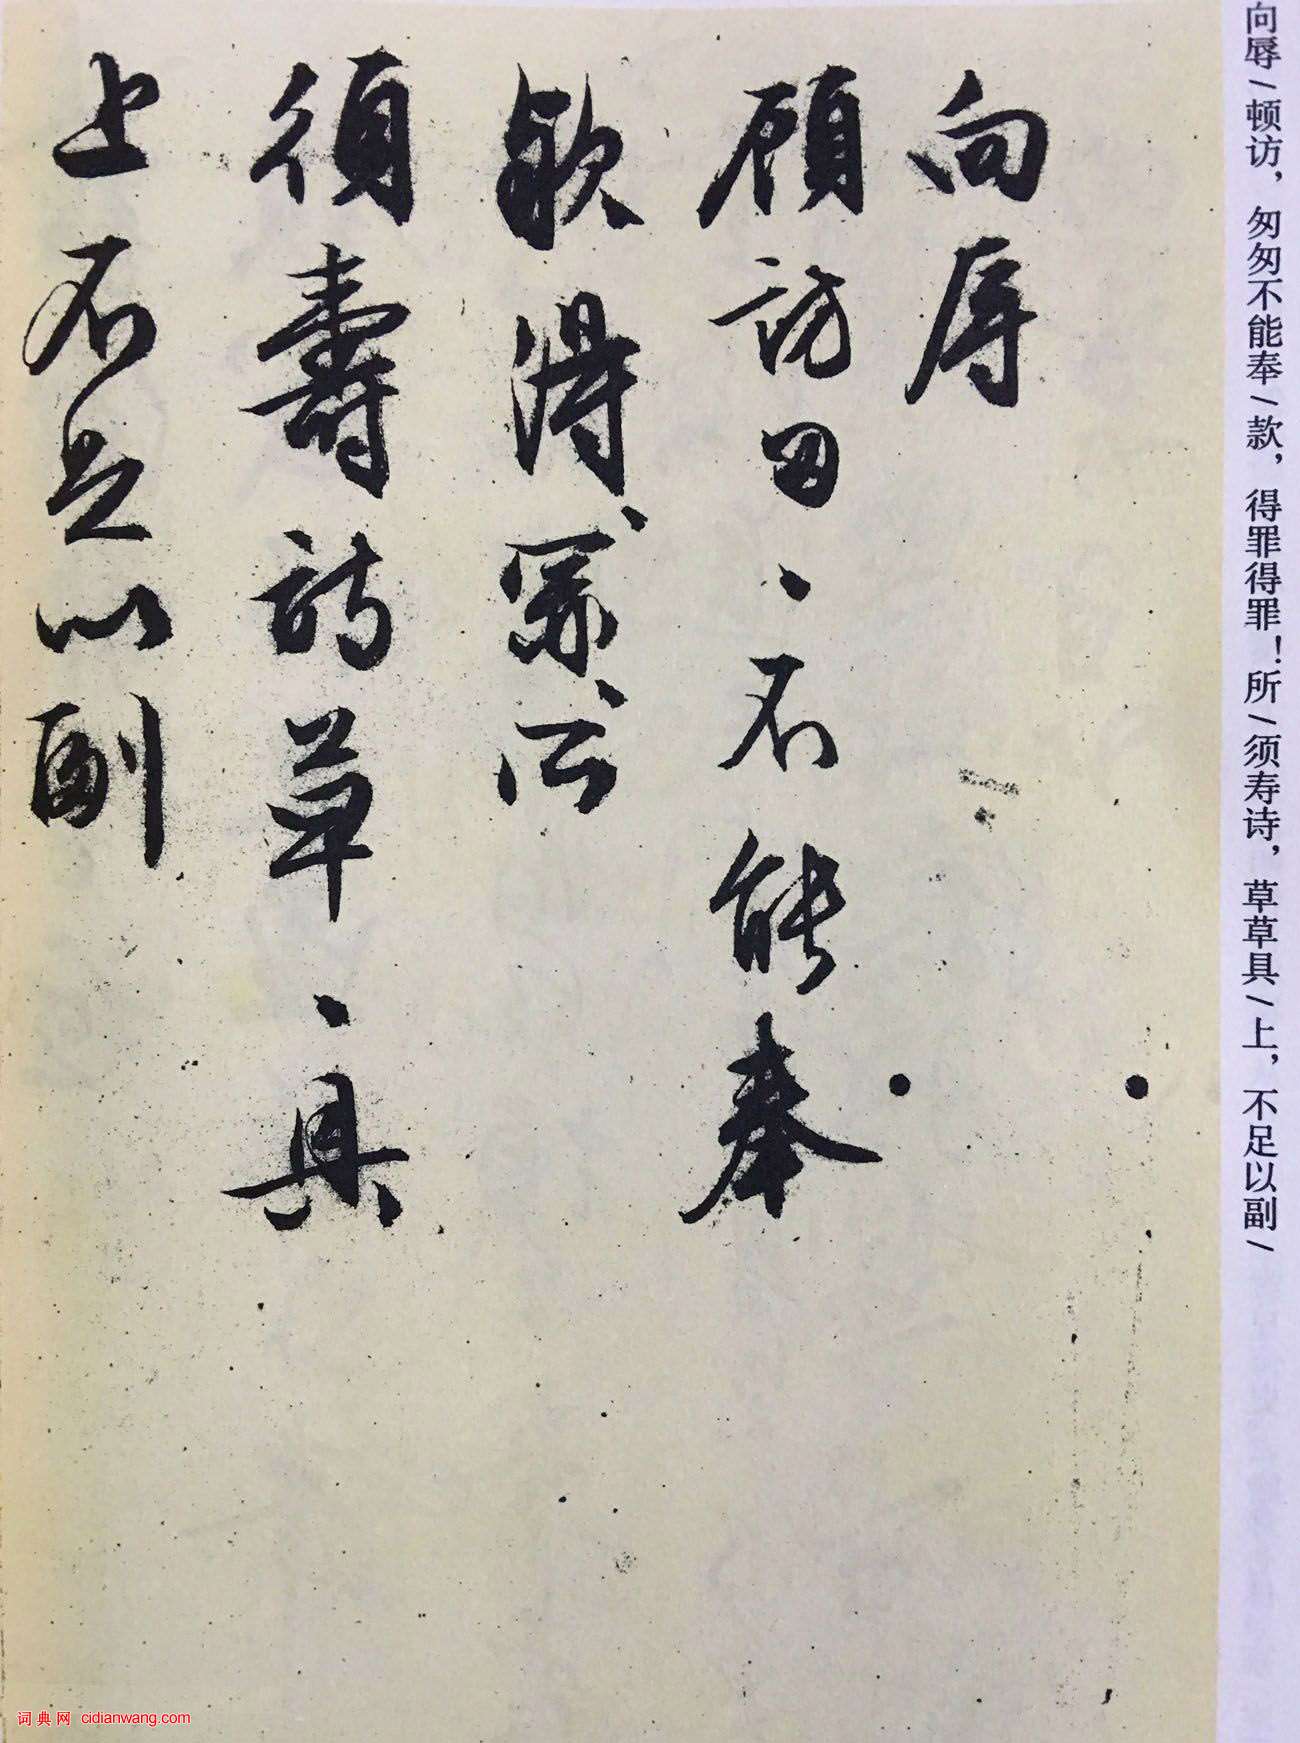 向辱
顾访匆〻不能奉
款得〻罪〻所
须寿诗草〻具
上不足以副
向辱/顿访，匆匆不能奉/款，得罪得罪！所/须寿诗，草草具/上，不足以副/
词典网 cidianwang.com